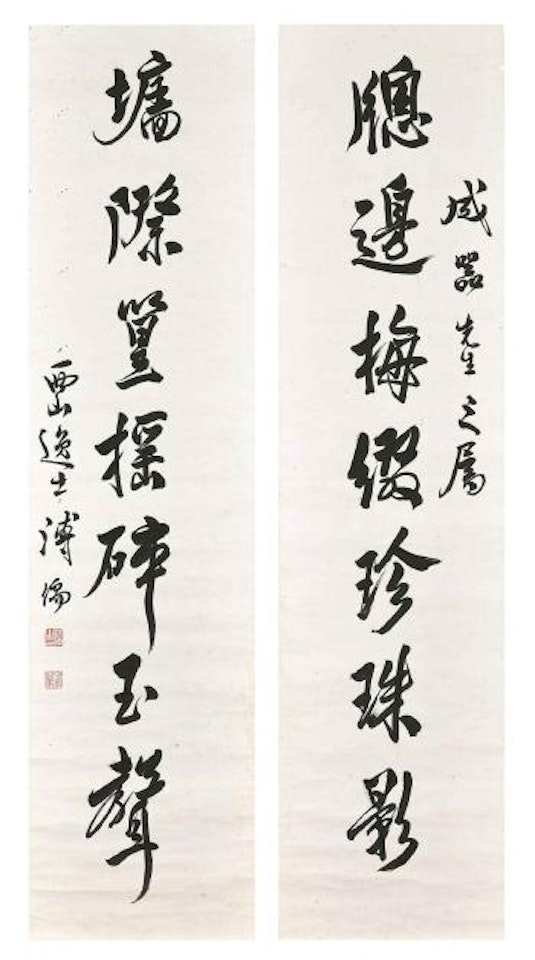 牕邊梅綴珍珠影
成器先生之屬
墻際篁搖碎玉聲
西山逸士溥儒